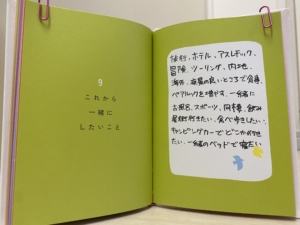 9
これから
一緒に
したいこと
旅行、ホテル、アスレチック、
冒険、ツーリング、内地、
海外、夜景の良いところで食事、
ペアルックを増やす、一緒に
お風呂、スポーツ、同棲、飲み
屋街行きたい、食べ歩きしたい、
キャンピングカーでどこか行き
たい、一緒のベッドで寝たい